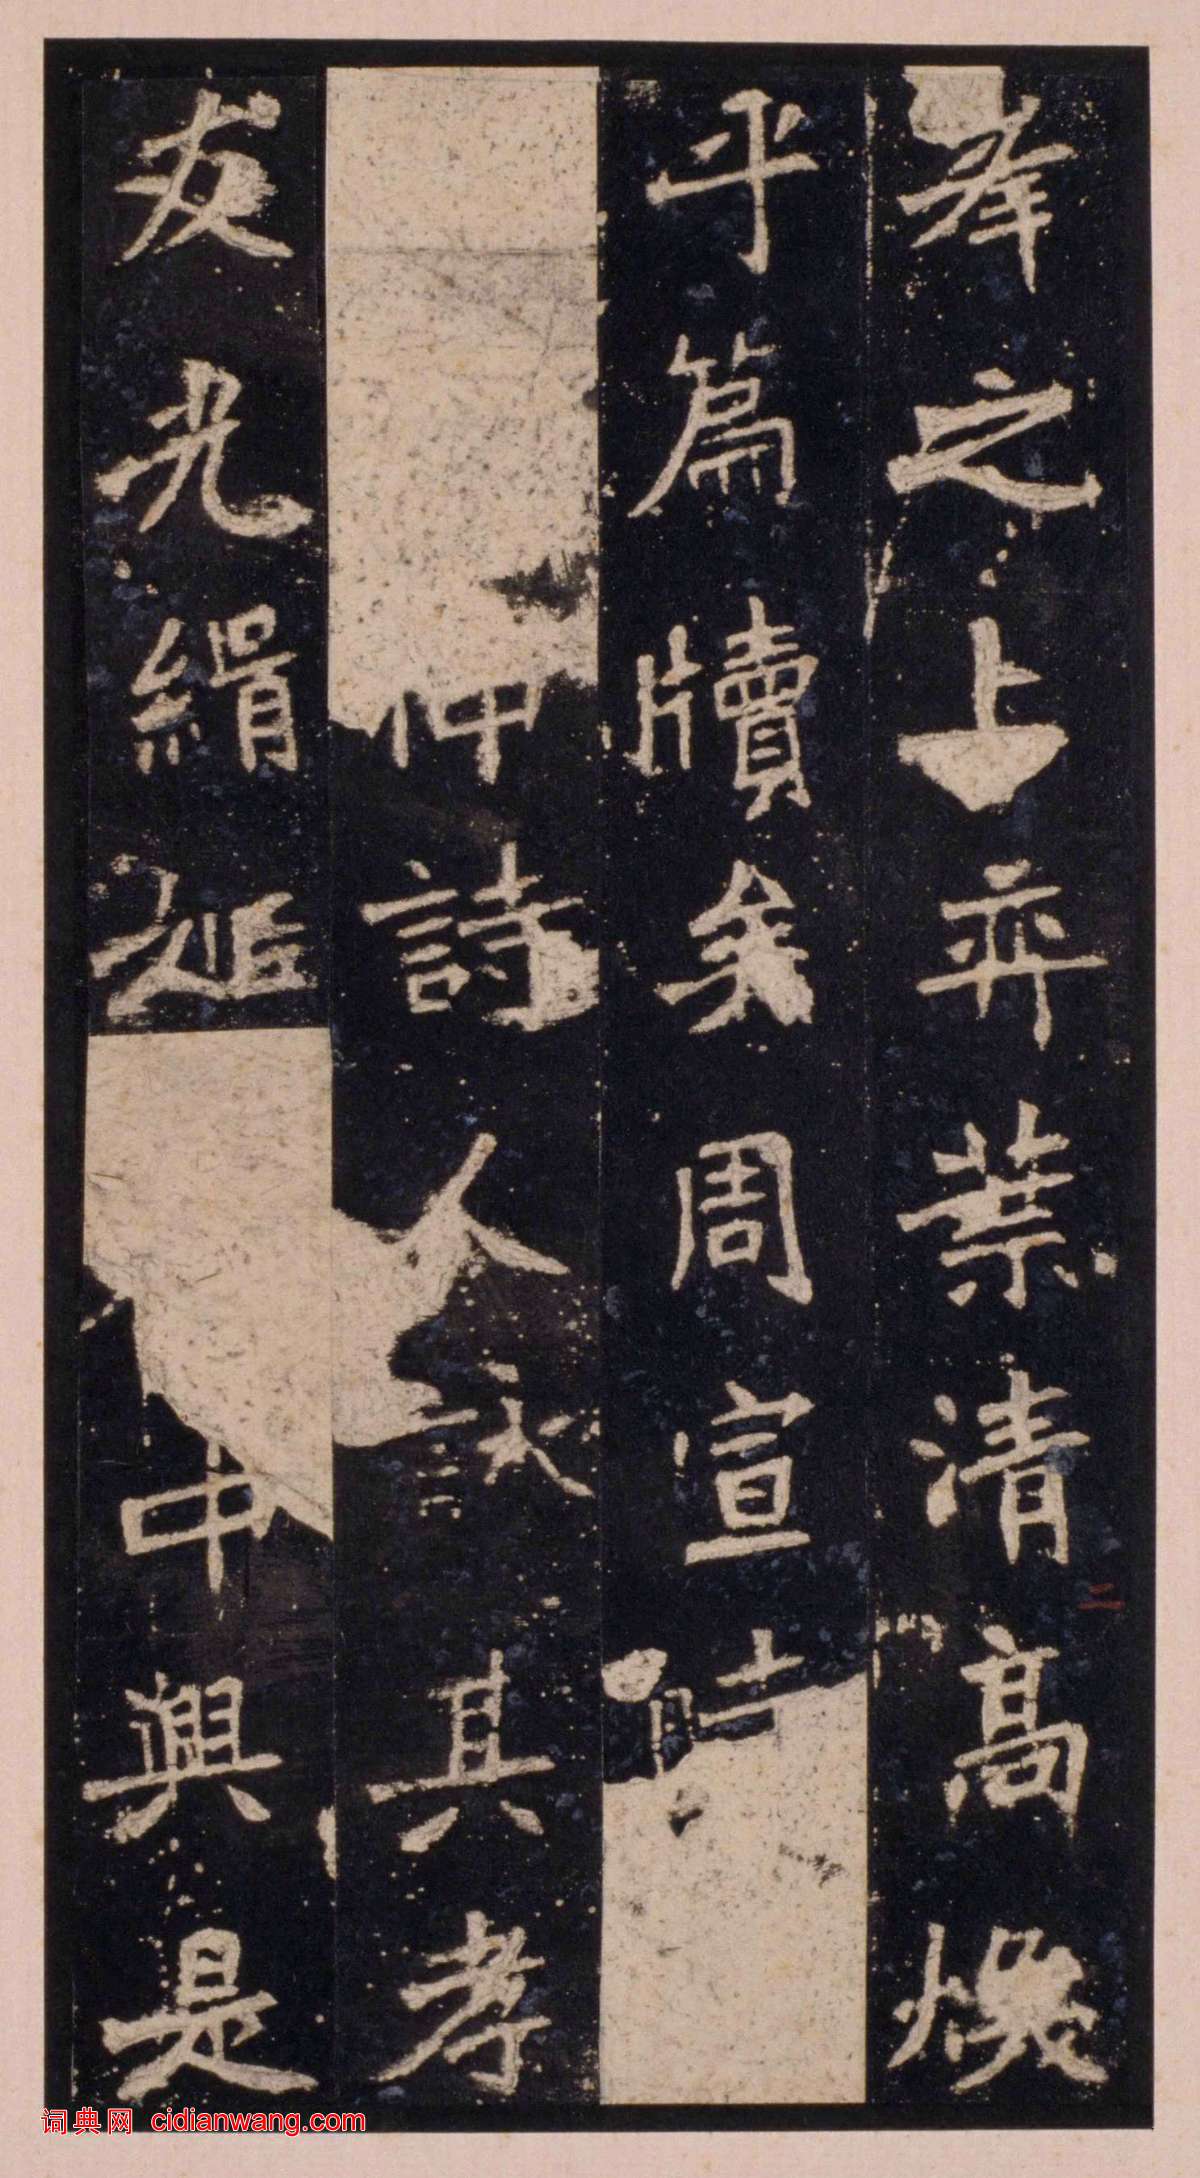 峯之上弈葉清高煥
乎篇牘矣周宣時
仲詩人詠其孝
友光緝姬中興是
二
词典网 cidianwang.com